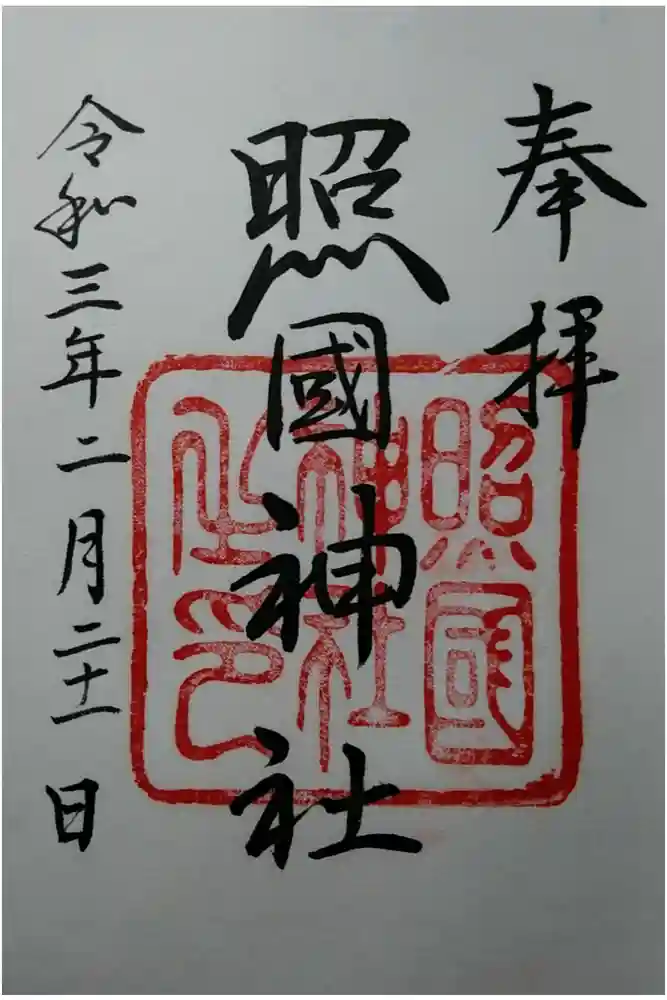 奉拝
照國神社
令和三年二月二十一日
照國
神社
之印